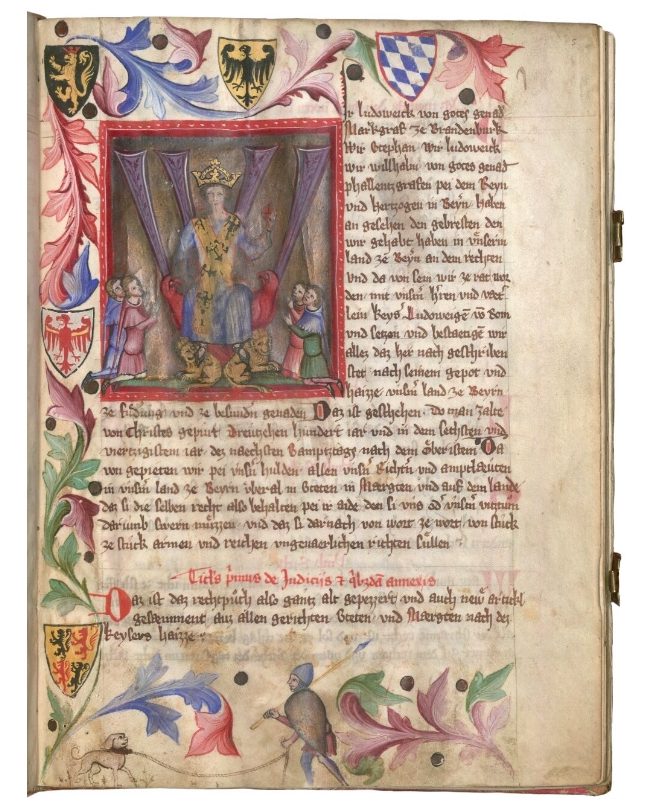 ir ludowick von gotes genad
Markgraf ze Brandenburk
wir Stephan wir ludowick
wir willhalm von gotes genad
phallentzgrafen pei dem Reyn
und hertzogen in Beyrn haben
an gesehen den gebresten den
wir gehabt haben in unserm
land ze Beyrn an dem rechten
und da von sein wir ze rat wor
den mit
keys Ludoweigen von Rom
und setzen und bestaetigen wir
allez daz her nach geschriben
stet nach seinem gepot und
haizze unserm land ze Beyrn
ze und ze besundern genaden Daz ist geschehen do man zalte
von Christes gepurt Dreutzehen hundert iar und in dem sechsten und
viertzigistem iar dez naechsten Samptztags nach dem Oberistem Da
von gepieten wir pei unsern hulden allen unsern Richtern und amptlaeuten
in unserm land ze Beyrn uberal in Steten in Maergten und auf dem lande
daz si die selben recht also behalten pei ir aide den si uns oder unsern
darumb swern muzzen und daz si dar nach von wort ze wort von stuk
ze stuk armen und reichen ungevaerlichen richten sullen
primus de Judicijs
Daz ist daz rechtpuch also gantz alt gepezzert und auch newr artickl
gesamment auz allen gerichten Steten und Maergten nach dez
keysers haizze